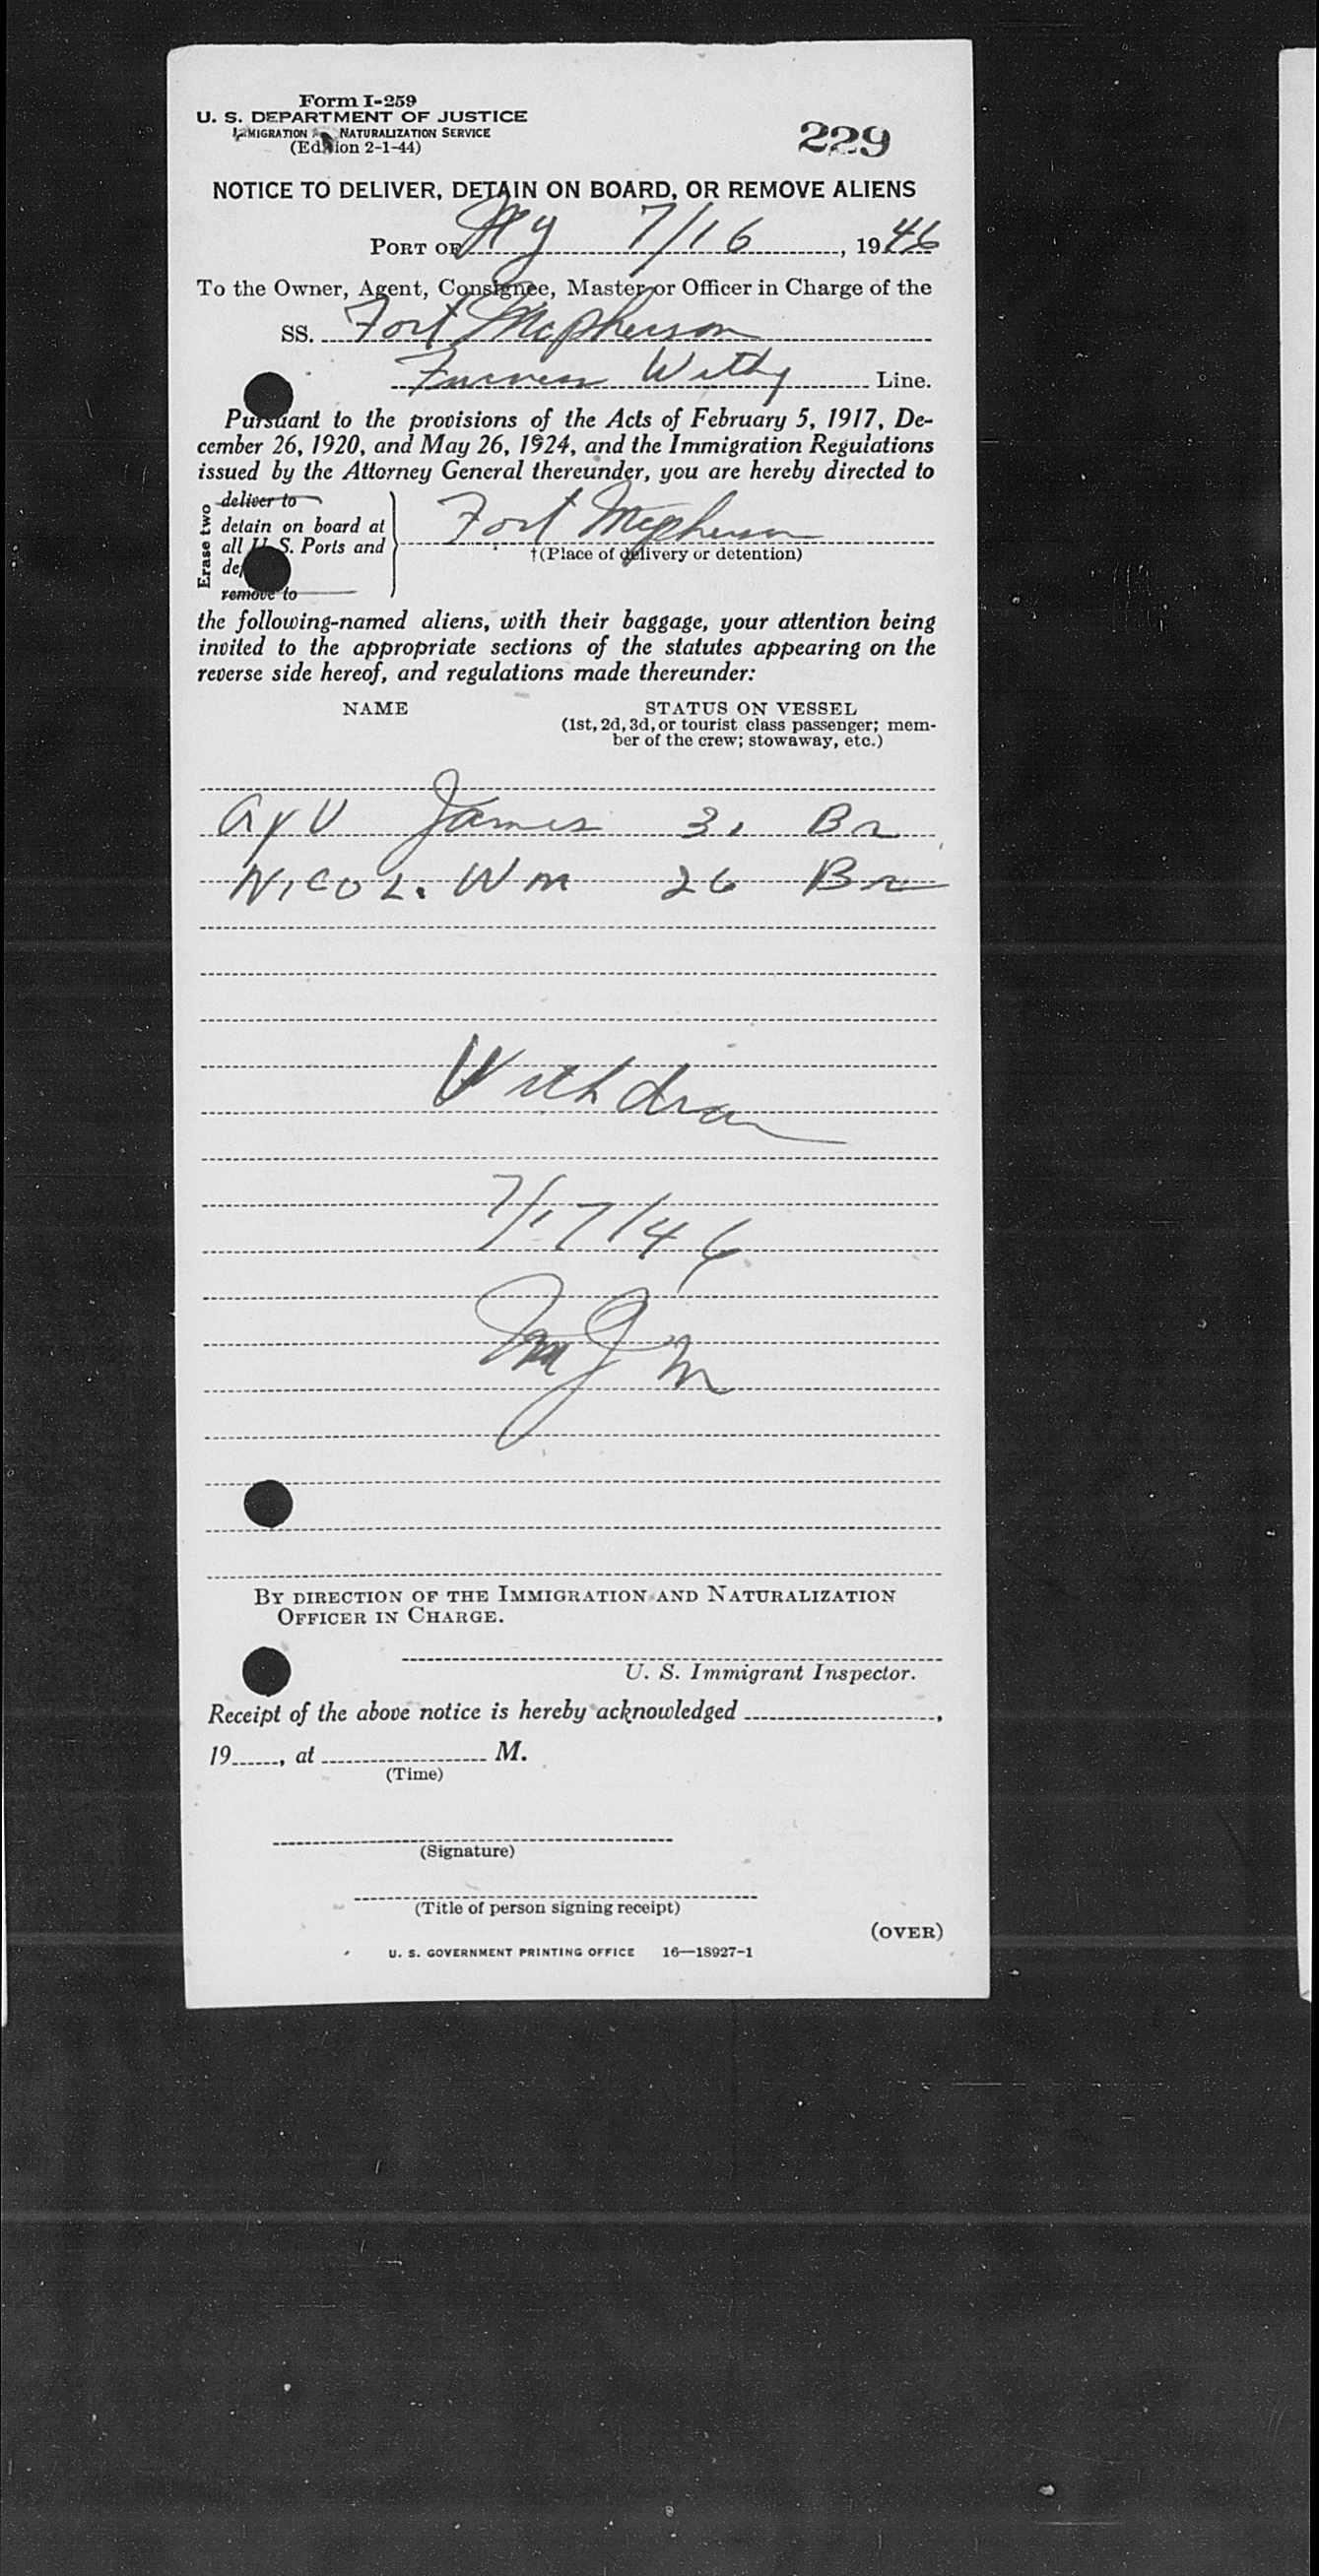 Form I-259
U. S. DEPARTMENT OF JUSTICE
IMMIGRATION NATURALIZATION SERVICE
(Edition 2-1-44)
229
NOTICE TO DELIVER, DETAIN ON BOARD, OR REMOVE ALIENS
PORT OF NY 7/16, 1946
To the Owner, Agent, Consignee, Master or Officer in Charge of the
SS. Fort McPherson
Furness Withy Line.
Pursuant to the provisions of the Acts of February 5, 1917, De-
cember 26, 1920, and May 26, 1924, and the Immigration Regulations
issued by the Attorney General thereunder, you are hereby directed to
Erase two
deliver to
detain on board at
all U. S. Ports and
remove to
Fort Mcpherson
†(Place of delivery or detention)
the following-named aliens, with their baggage, your attention being
invited to the appropriate sections of the statutes appearing on the
reverse side hereof, and regulations made thereunder:
NAME STATUS ON VESSEL
(1st, 2d, 3d, or tourist class passenger; mem-
ber of the crew; stowaway, etc.)
James 31 Br
NICOL. Wm 26 Br
7/17/46
BY DIRECTION OF THE IMMIGRATION AND NATURALIZATION
OFFICER IN CHARGE.
U. S. Immigrant Inspector.
Receipt of the above notice is hereby acknowledged ,
19 , at M.
(Time)
(Signature)
(Title of person signing receipt)
(OVER)
U. S. GOVERNMENT PRINTING OFFICE 16—18927-1